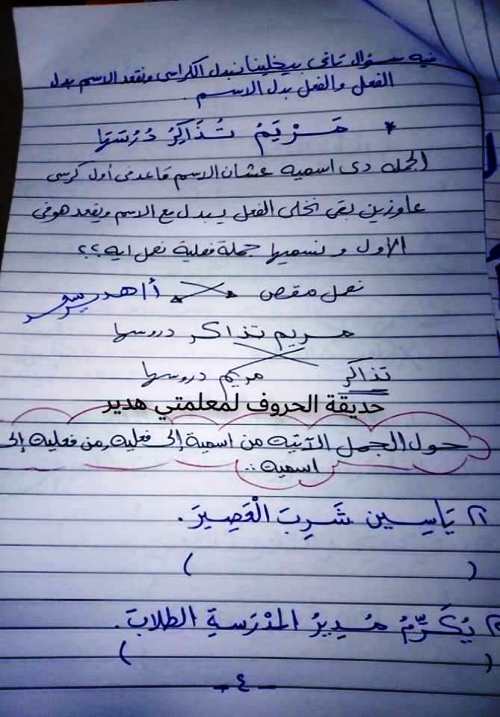 فيه سؤال تاني بيخلينا نبدل الكراسي ونقعد الاسم بدل
الفعل والفعل بدل الاسم .
* مَرْيَمُ تُذَاكِرُ دُرُسَهَا
الجمله دى اسميه عشان الاسم قاعد فى أول كرسى
عاوزين بقى نخلى الفعل يبدل مع الاسم ويقعد هو فى
الاول و نسميها جملة فعلية نعمل ايه ؟؟
نعمل مقص أ/ هدير
مريم تذاكر دروسها
تذاكر مريم دروسها
حديقة الحروف لمعلمتي هدير
حول الجمل الآتيه من اسمية إلى فعليه ومن فعليه إلى
اسميه ..
٢) يَاسِين شَرِبَ الْعَصِيرَ .
( )
يُكَرِّمُ مُدِيرُ المَدْرَسَةِ الطلابَ .
( )
- ٤ -